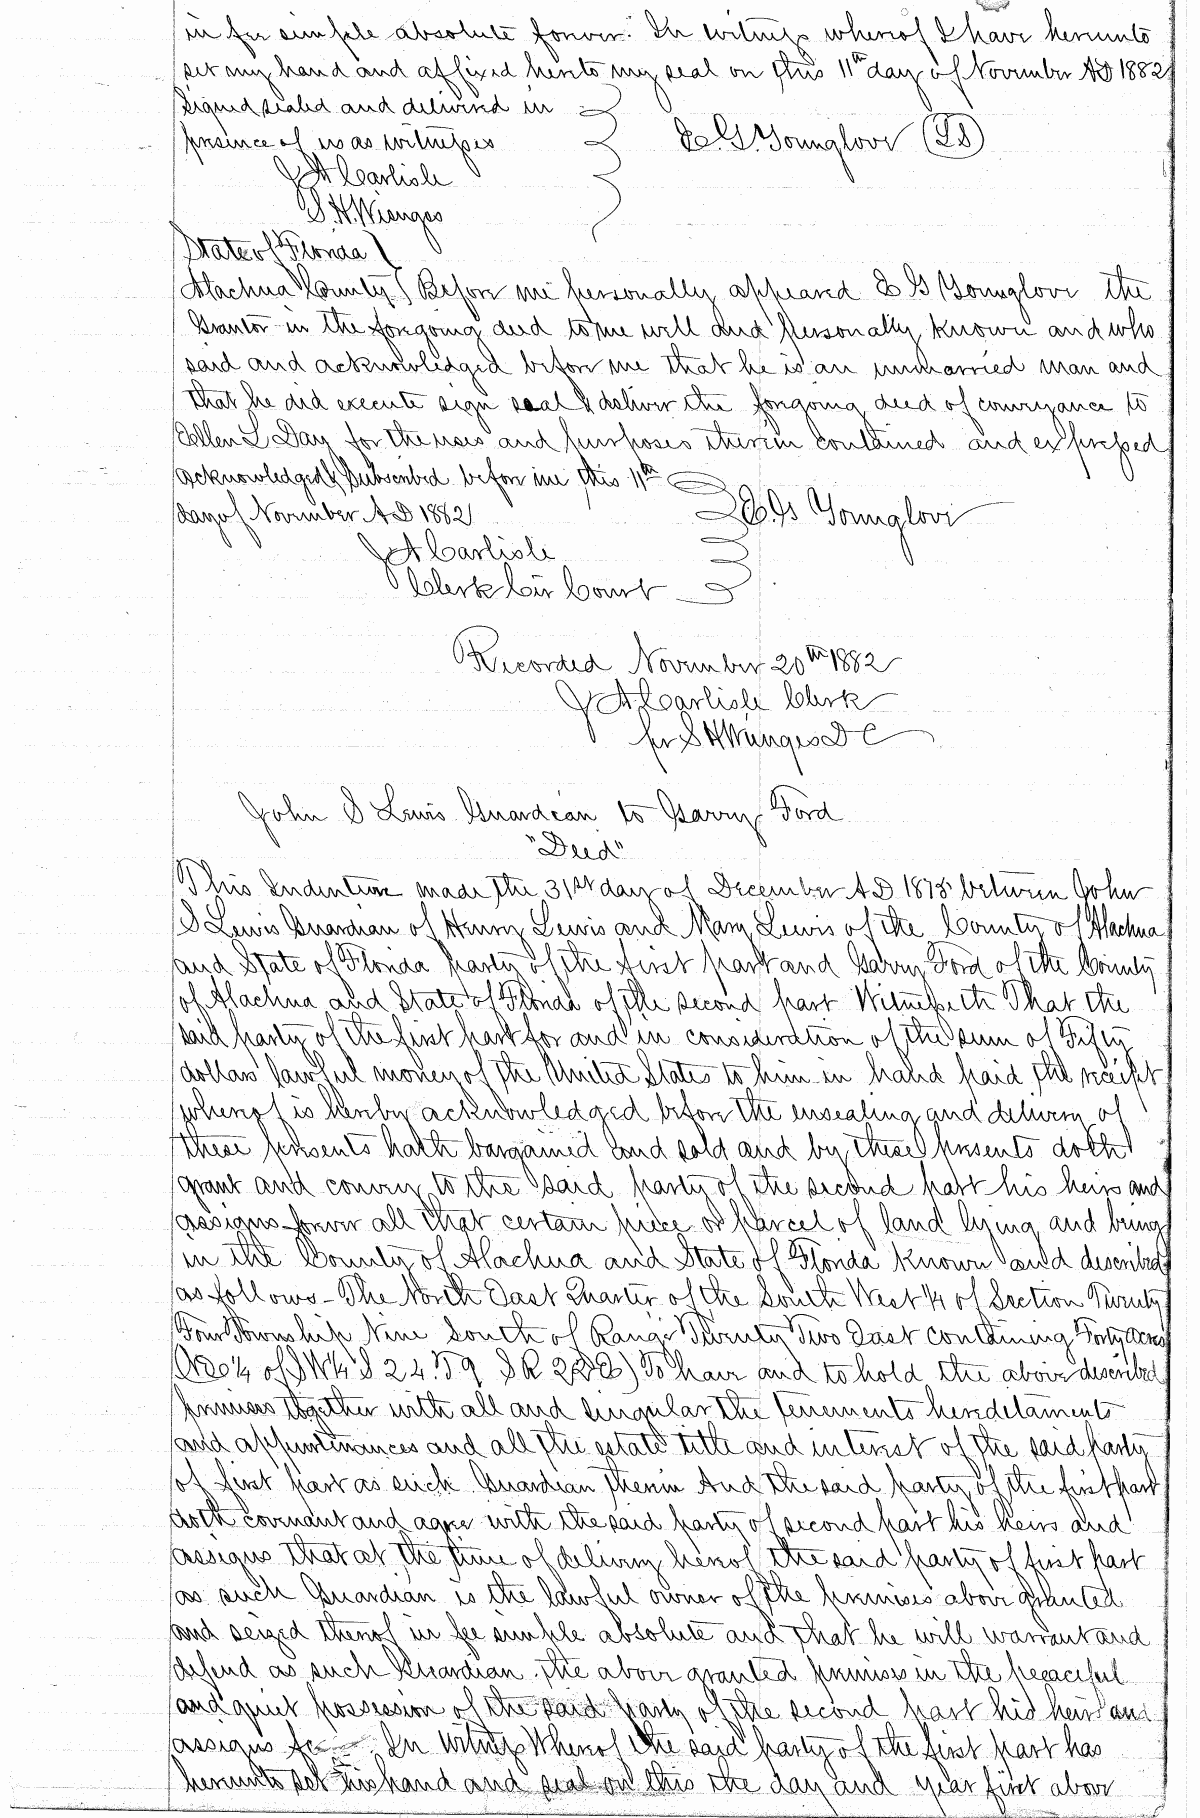 in fee simple absolute forever. In witness whereof I have hereunto
set my hand and affixed hereto my seal on this 11th day of November AD 1882
Signed sealed and delivered in
presence of us as witnesses
E. G. Younglove (LS)
J A Carlisle
S. H. Wienges
State of Florida
Alachua County Before me personally appeared E G Younglove the
Grantor in the forgoing deed to me well and personally known and who
said and acknowledged before me that he is an unmarried man and
that he did execute sign seal & deliver the forgoing deed of conveyance to
Ellen L Day for the uses and purposes therein contained and expressed
Acknowledged & Subscribed before me this 11th
day of November AD 1882
E. G Younglove
J A Carlisle
Clerk Cir Court
Recorded November 20th 1882
J A Carlisle Clerk
per S H Wienges D C
John S Lewis Guardean to Garry Ford
"Deed"
This Indenture made the 31st day of December AD 1878 between John
S Lewis Guardian of Henry Lewis and Mary Lewis of the County of Alachua
and State of Florida party of the first part and Garry Ford of the County
of Alachua and State of Florida of the second part Witnesseth That the
said party of the first part for and in consideration of the sum of Fifty
dollars lawful money of the United States to him in hand paid the receipt
whereof is hereby acknowledged before the ensealing and delivery of
these presents hath bargained and sold and by these presents doth
grant and convey to the said party of the second part his heirs and
assigns forever all that certain piece or parcel of land lying and being
in the County of Alachua and State of Florida known and described
as follows - The North East Quarter of the South West 1/4 of Section Twenty
Four Township Nine South of Range Twenty Two East containing Forty acres
(NE 1/4 of SW 1/4 S 24. T 9 S R 22 E) To have and to hold the above described
premises together with all and singular the tenements hereditaments
and appurtenances and all the estate title and interest of the said party
of first part as such Guardian therein And the said party of the first part
doth covenant and agree with the said party of second part his heirs and
assigns that at the time of delivery hereof the said party of first part
as such Guardian is the lawful owner of the premises above granted
and seized thereof in fee simple absolute and that he will warrant and
defend as such Guardian the above granted premises in the peaceful
and quiet possession of the said party of the second part his heirs and
assigns In Witness Whereof the said party of the first part has
hereunto set his hand and seal on this the day and year first above